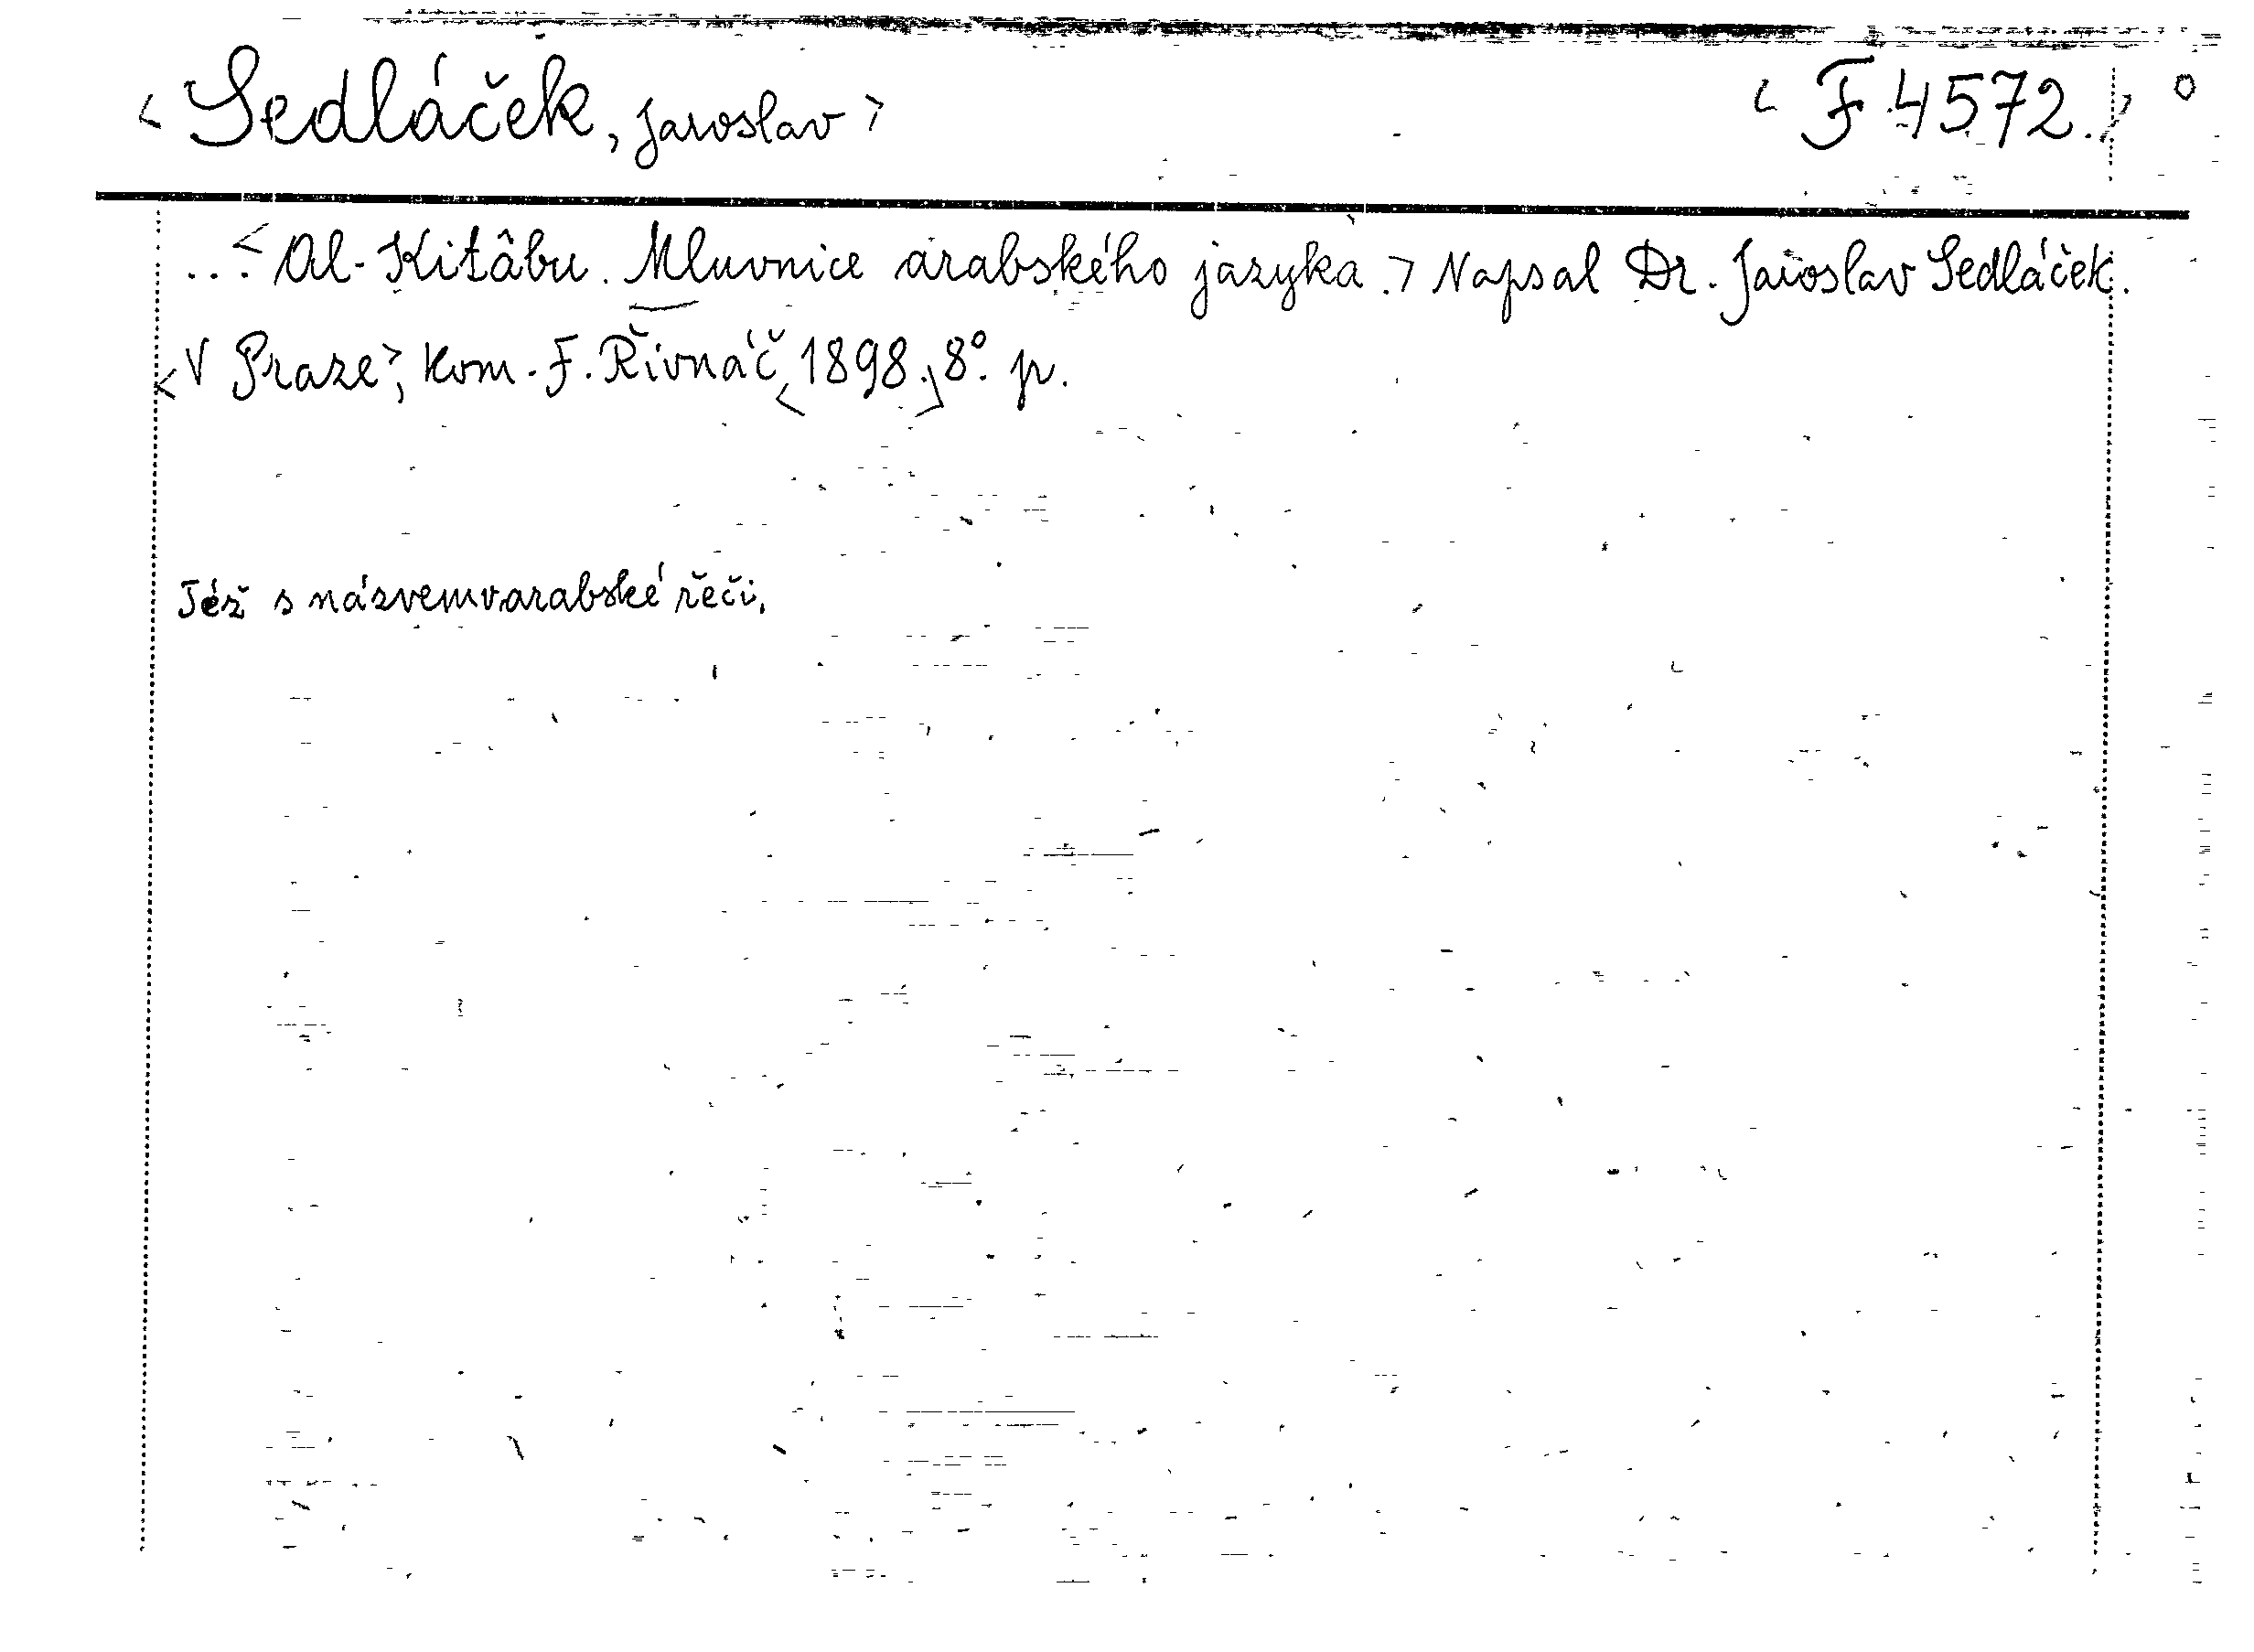 <Sedláček, Jaroslav> <F 4572.>
...<Al-Kitâbu. Mluvnice arabského jazyka.> Napsal Dr. Jaroslav Sedláček.
<V Praze>, kom. F. Řivnáč <1898.> 8°. p.
Též s názvem v arabské řeči.